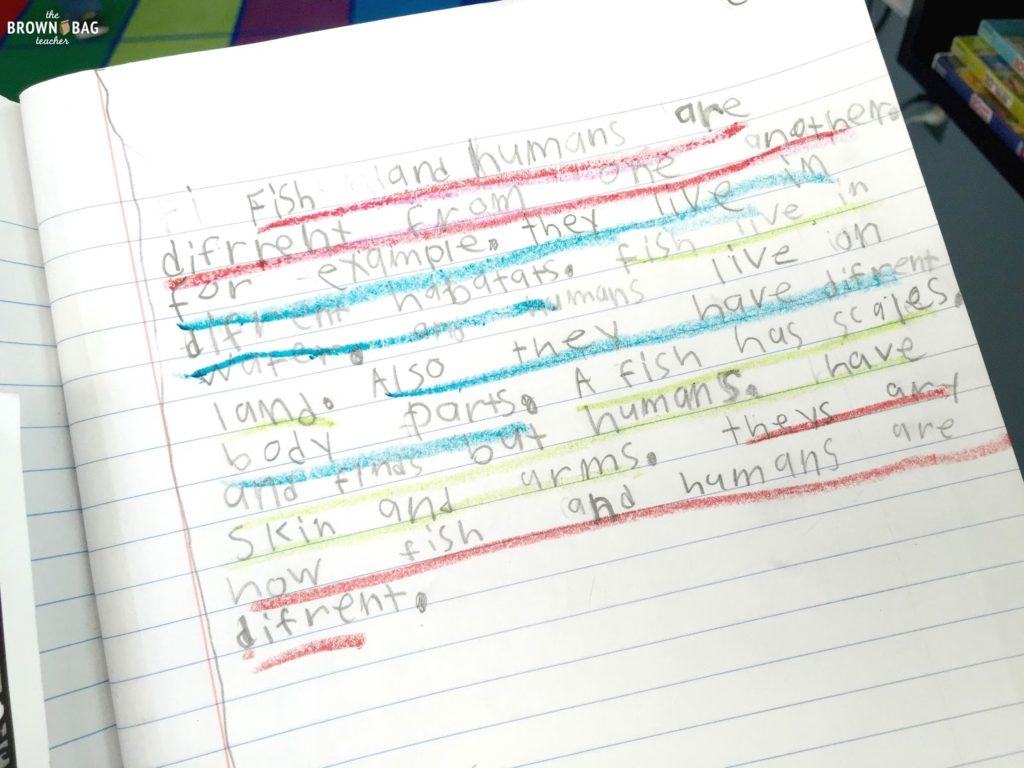 the
BROWN BAG
teacher
Fi Fish and humans are
difrrent from one another.
for example. they live in
difrent habatats. fish live in
water. and humans live on
land. Also they have difrent
body parts. A fish has scales.
and finds but humans. have
Skin and arms. theys
how fish and humans are
difrent.